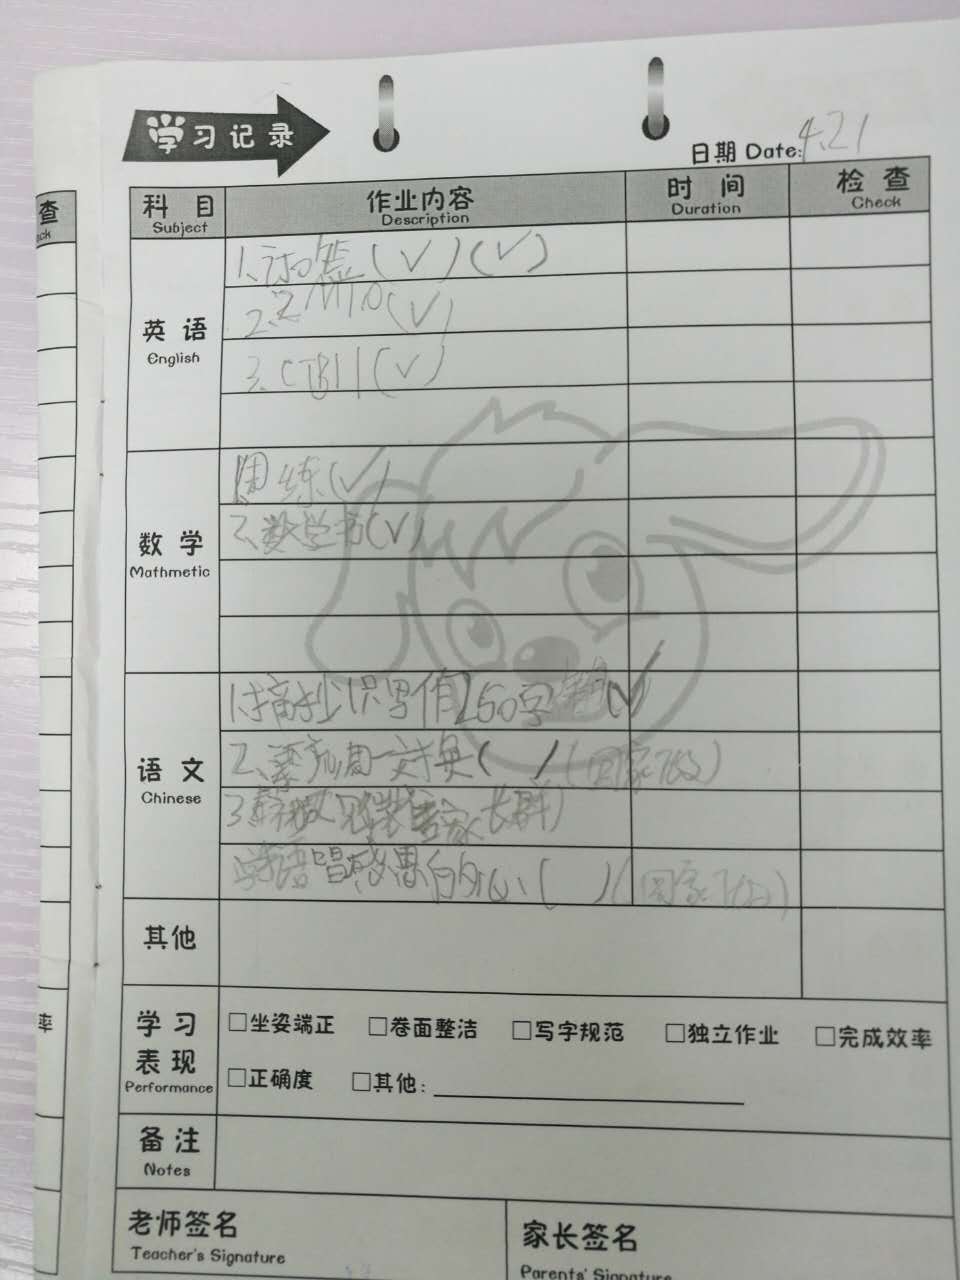 查
ck
率
学习记录
日期 Date: 4.21
科目 作业内容 时间 检查
Subject Description Duration Check
英语
English
1. (✓)(✓)
2. (✓)
3. (✓)
数学
Mathmetic
周练(✓)
2.数学书(✓)
语文
Chinese
1.摘抄 写作250字 (✓
2. 周一 ( )(回家做)
3. 家长群)
唱 ( )(回家做)
其他
学习
表现
Performance
□坐姿端正 □卷面整洁 □写字规范 □独立作业 □完成效率
□正确度 □其他:
备注
Notes
老师签名 家长签名
Teacher's Signature Parents' Signature